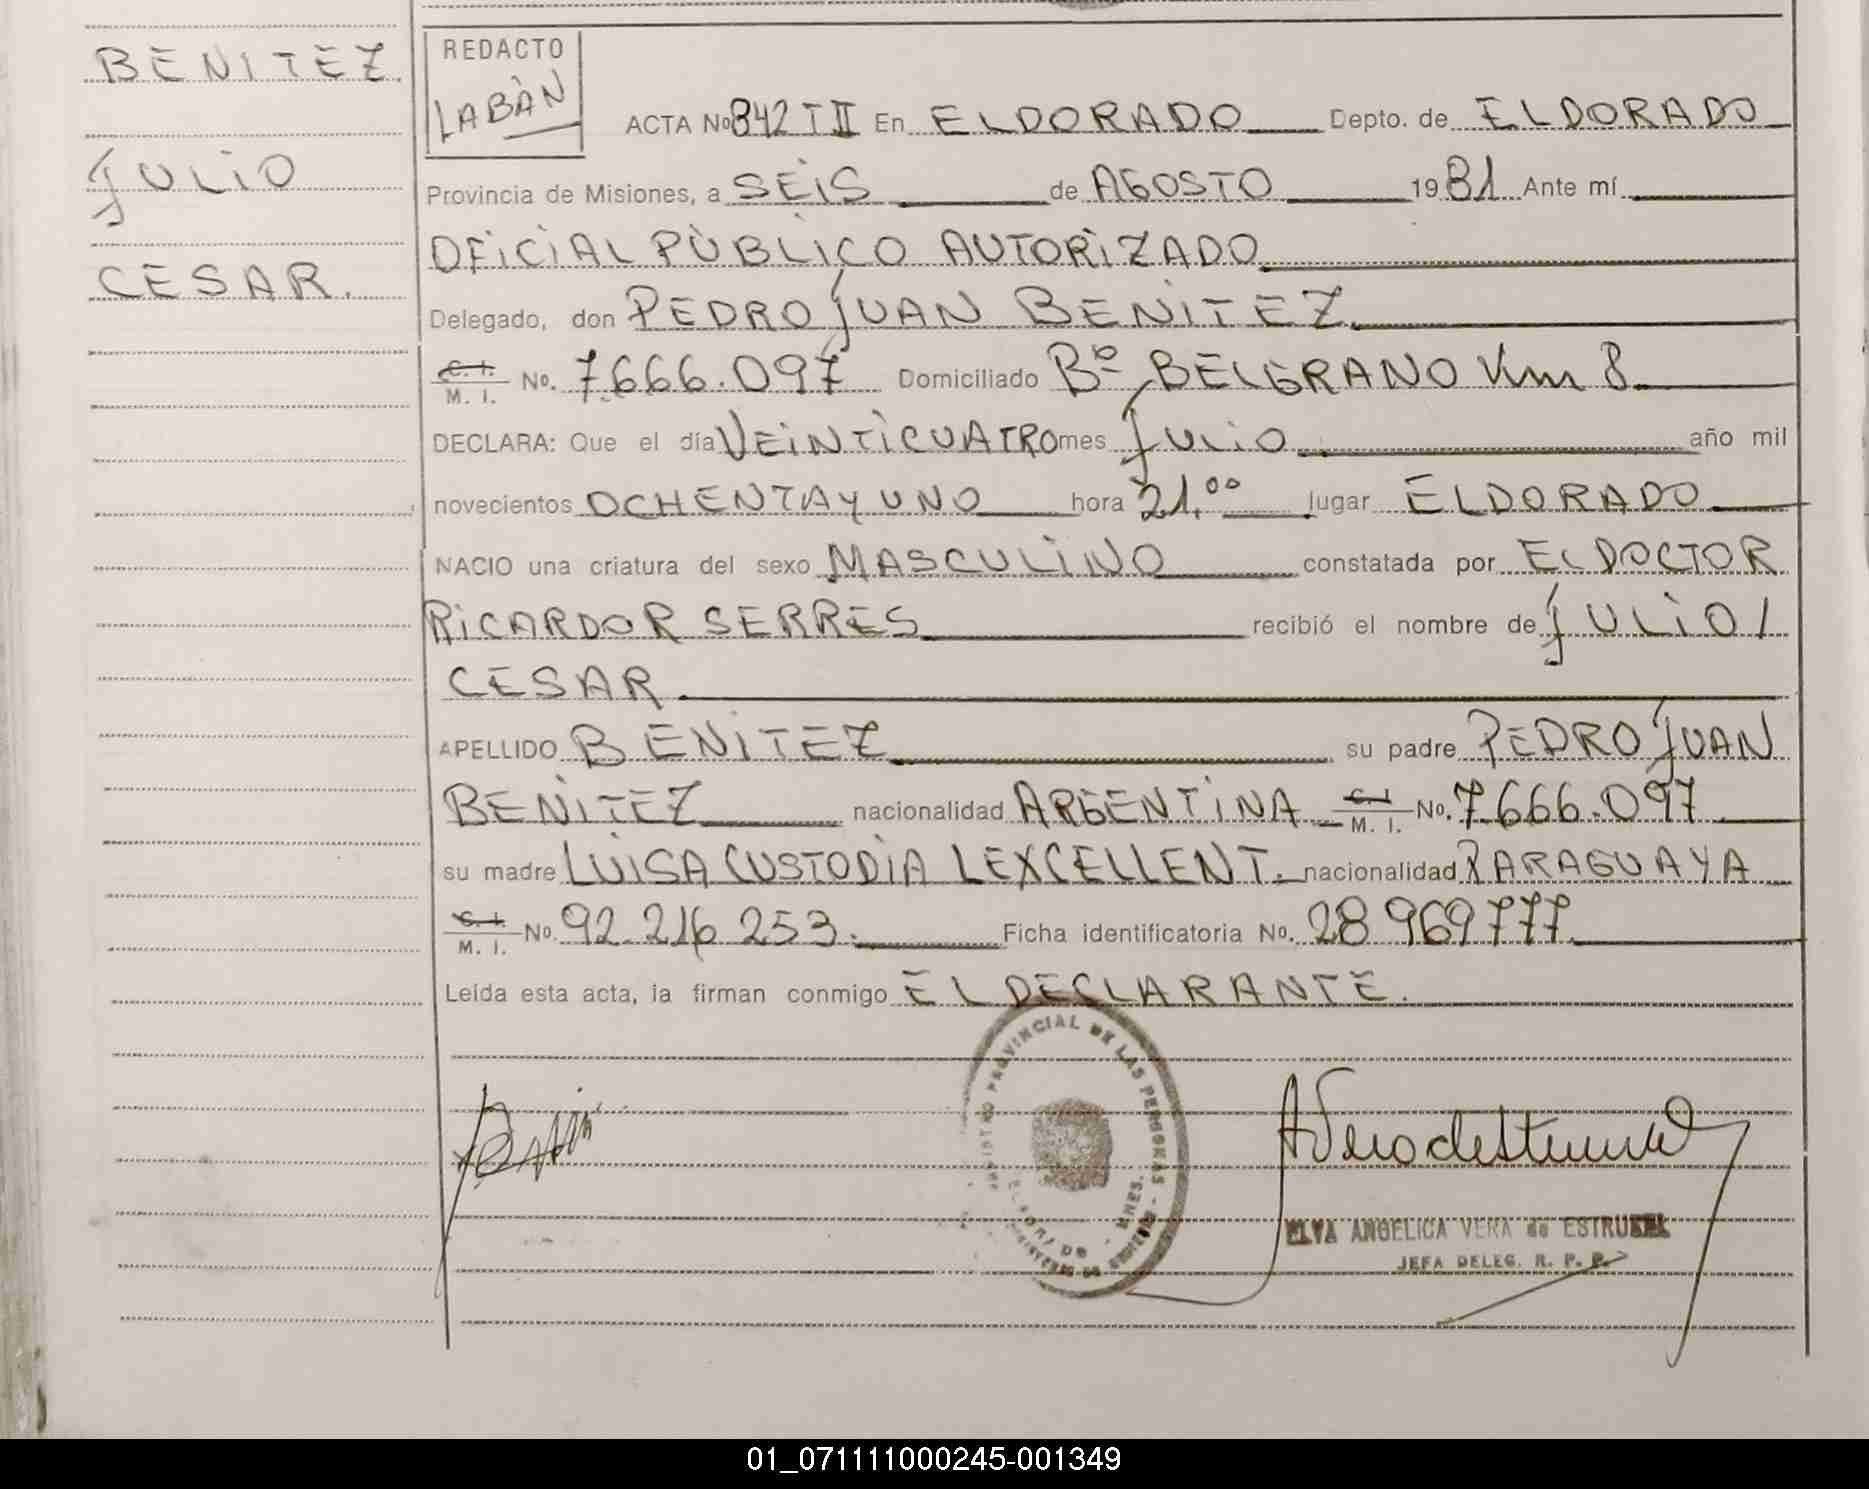 BENITEZ
JULIO
CESAR.
REDACTO
LABÀN
ACTA No 842 T II En ELDORADO Depto. de ELDORADO
Provincia de Misiones, a SEIS de AGOSTO 1981 Ante mí
OFICIAL PÙBLICO AUTORIZADO
Delegado, don PEDRO JUAN BENITEZ
C. I. / M. I. No. 7.666.097 Domiciliado Bº BELGRANO Km 8
DECLARA: Que el día VEINTICUATRO mes JULIO año mil
novecientos OCHENTA Y UNO hora 21,⁰⁰ lugar ELDORADO
NACIO una criatura del sexo MASCULINO constatada por EL DOCTOR
RICARDO R SERRES recibió el nombre de JULIO /
CESAR.
APELLIDO BENITEZ su padre PEDRO JUAN
BENITEZ nacionalidad ARGENTINA C. I. / M. I. No. 7.666.097
su madre LUISA CUSTODIA LEXCELLENT. nacionalidad PARAGUAYA
C. I. / M. I. No. 92.216 253. Ficha identificatoria No. 28 969777.
Leída esta acta, la firman conmigo EL DECLARANTE.
REGISTRO PROVINCIAL DE LAS PERSONAS - MISIONES
ELDORADO - MNES.
ELVA ANGELICA VERA de ESTRUBEL
JEFA DELEG. R. P. P.
01_071111000245-001349